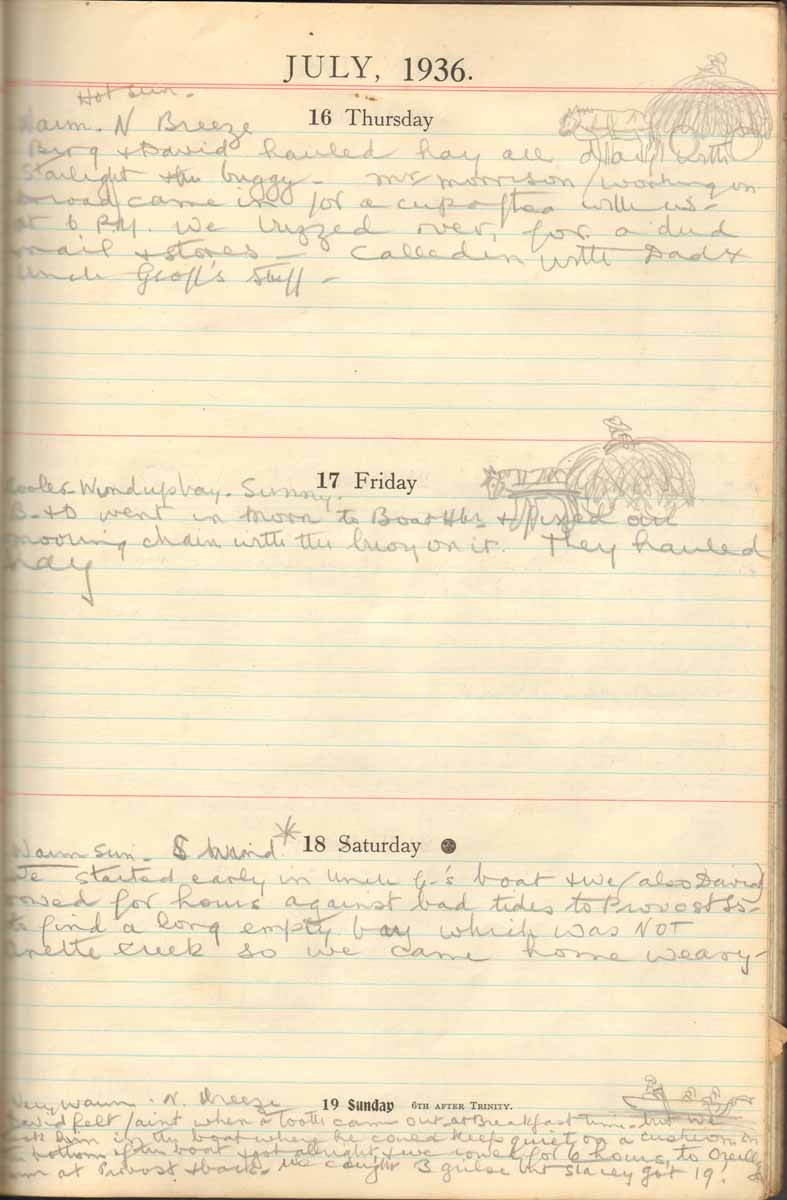 JULY, 1936.
Hot sun.
Warm. N Breeze
16 Thursday
& David hauled hay all day with
Starlight & the buggy - Mr Morrison (working on
road) came in for a cup of tea with us -
at 6 P.M. we buzzed over, for a dud
mail & stores - Called in with Dad &
Uncle Geoff's stuff -
Cooler. Wind up bay. Sunny.
17 Friday
B. & D went in morn to Boat Hbr & fixed out
mooring chain with the buoy on it. They hauled
hay
Warm sun. S wind.
* 18 Saturday
We started early in Uncle G-'s boat & we (also David)
rowed for hours against bad tides to Provost
to find a long empty bay which was NOT
Anette Creek so we came home weary -
Very warm. N. Breeze
19 Sunday 6TH AFTER TRINITY.
David felt faint when a tooth came out at Breakfast time - but we
took him in the boat where he could keep quiet on a cushion in
bottom of the boat & got allright & we rowed for 6 hours, to
at Provost & back - We caught 3 grilse but Stacey got 19!